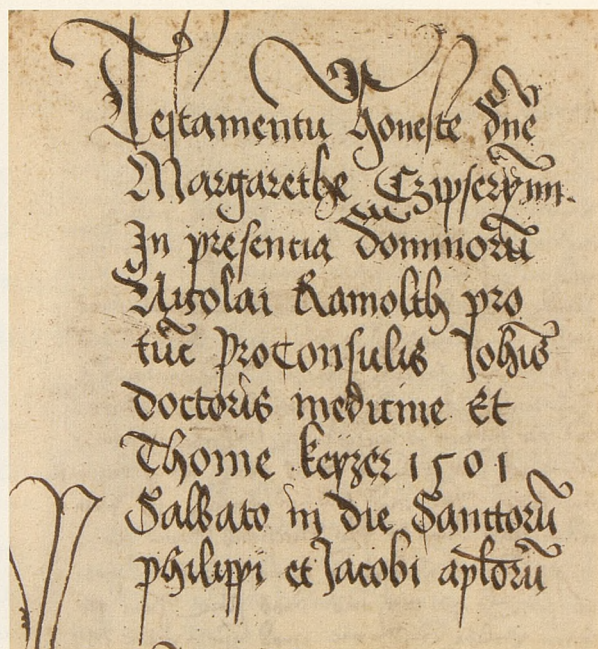 Testamentū honeste dn̄e
Margarethe Czipserÿnn.
In presencia dominorū
Nicolai Ramolth pro
tūc proconsulis Joħis
doctoris medicine Et
Thome keyzer 1501
Sabbato in die Sanctorū
philippi et Jacobi apłorū